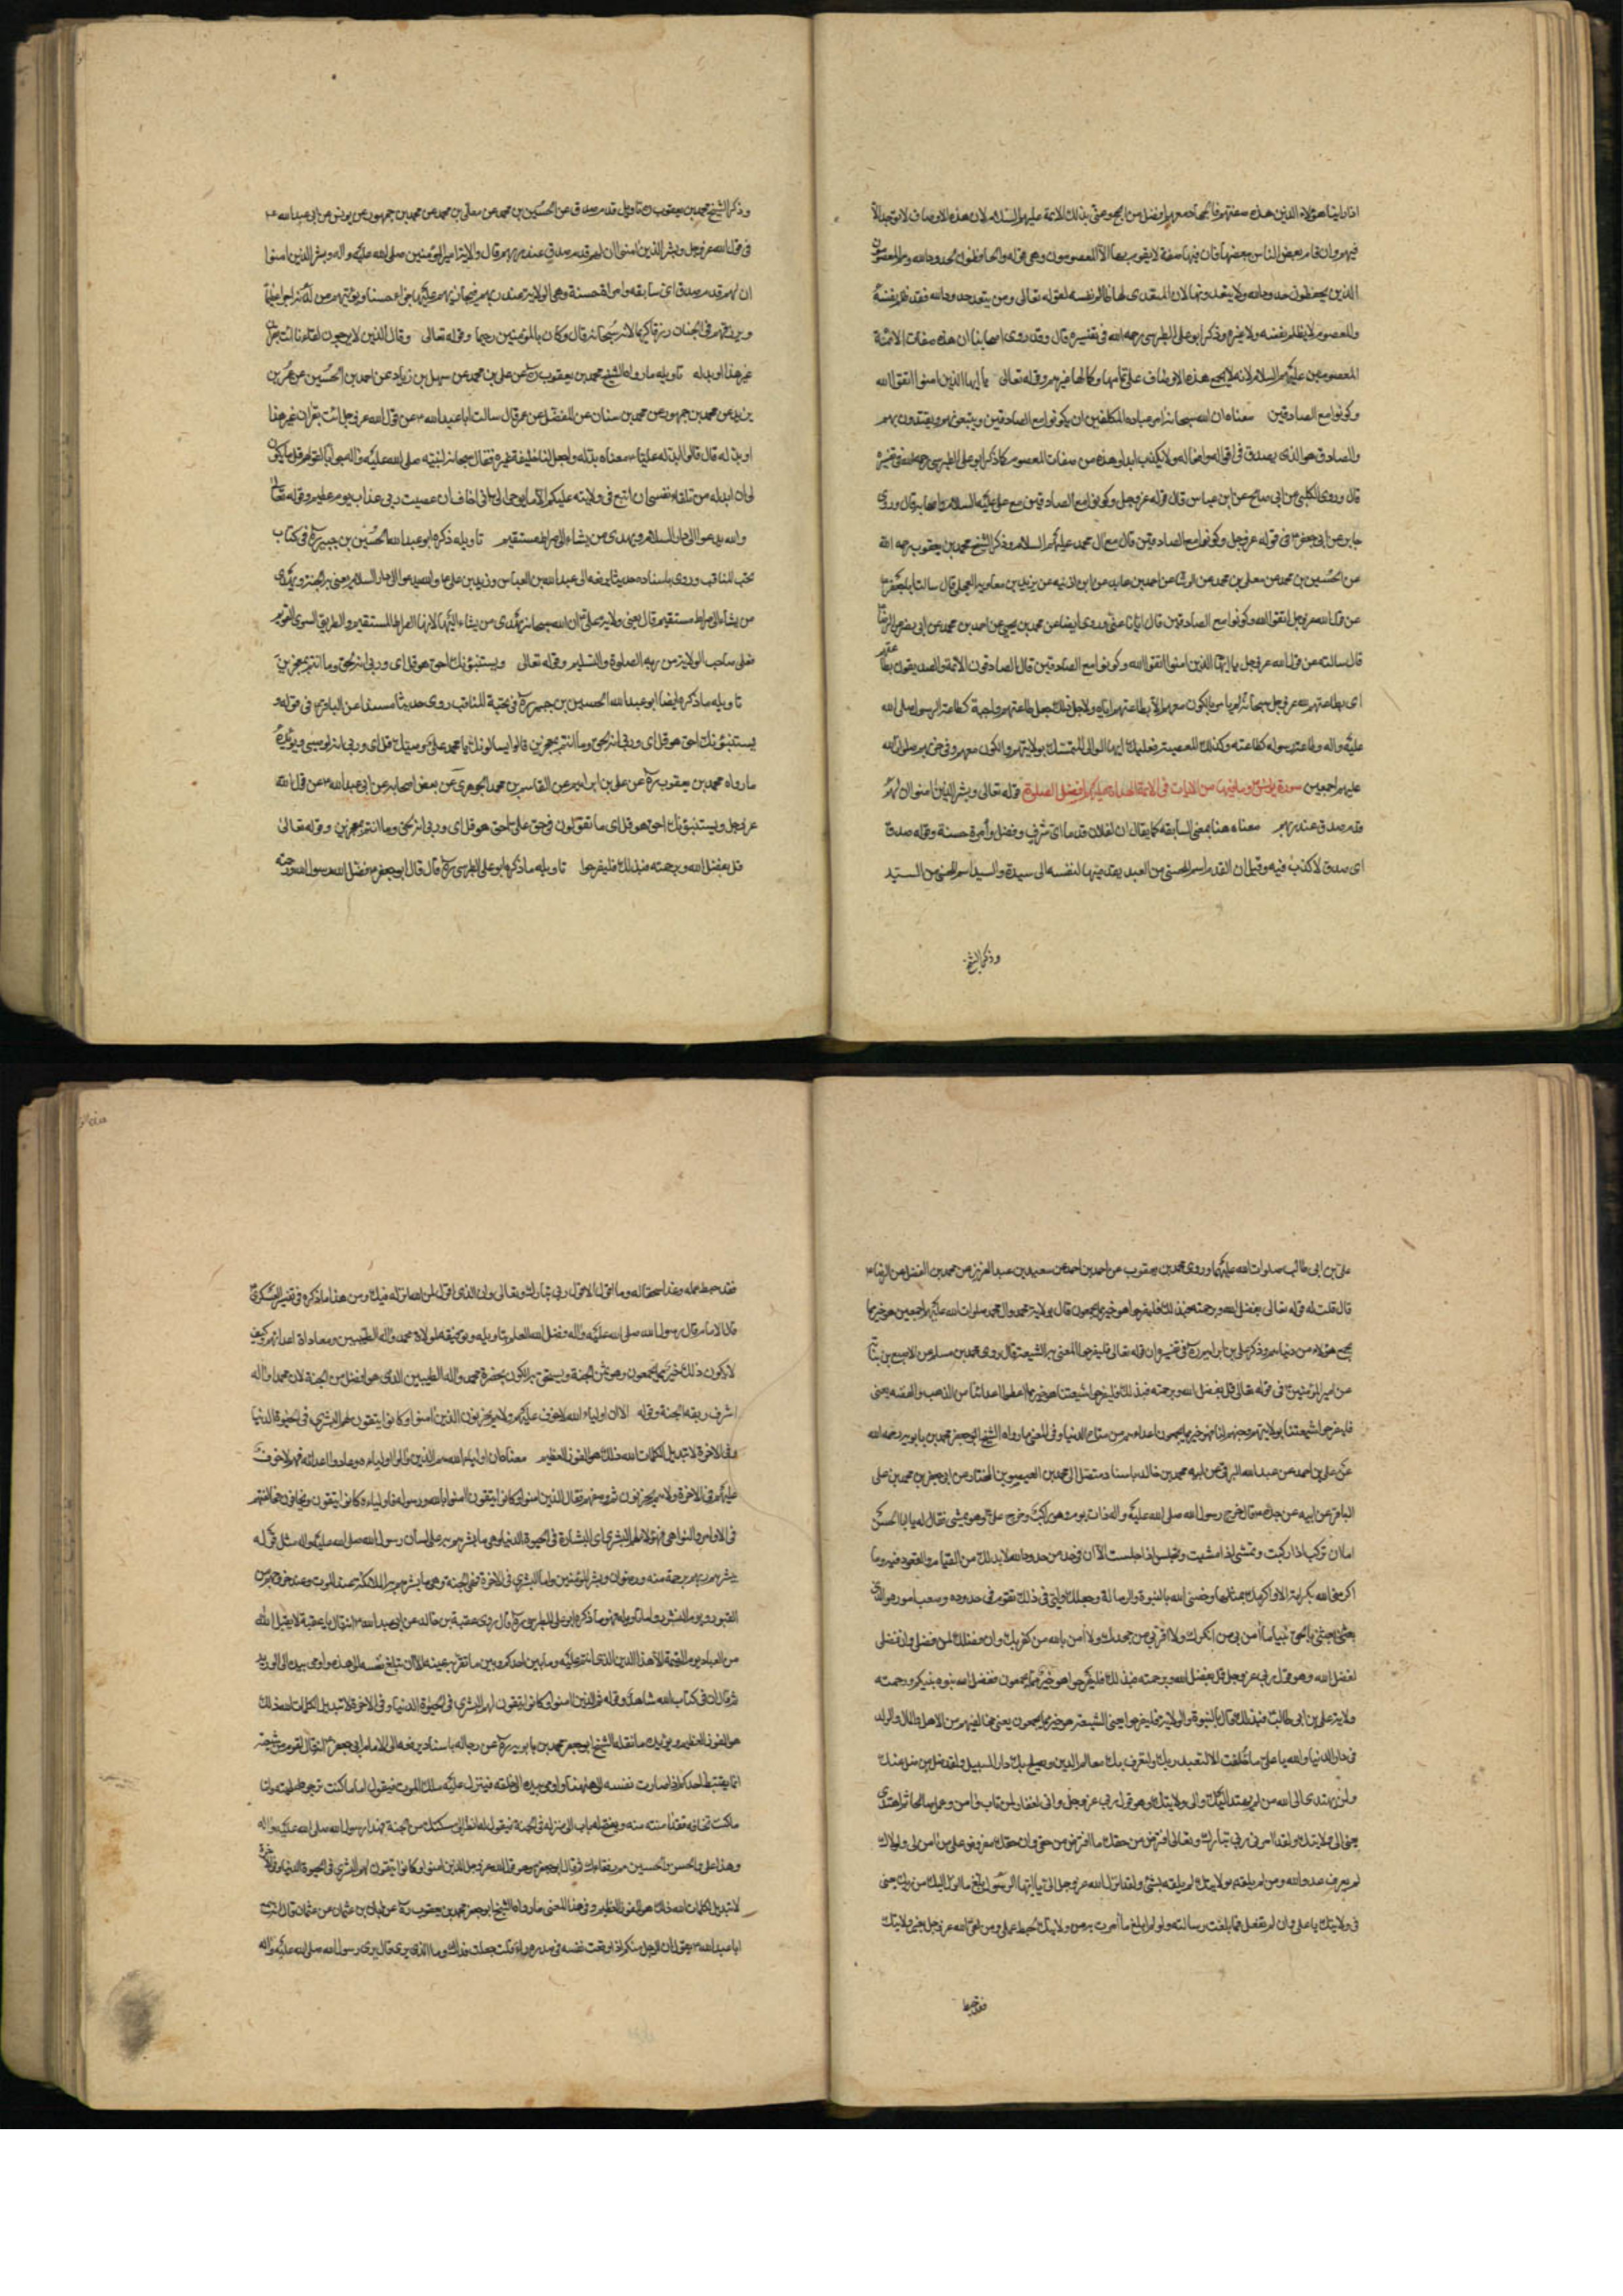 اذا راينا هؤلاء الذين هذه صفتهم فالجهاد معهم افضل من الحج وعنى بذلك الائمة عليهم السلام لان هذه الاوصاف لا توجد الا
فيهم وان قام بعض الناس ببعضها فان فيها صفة لا يقوم بها الا المعصومون وهى قوله والحافظون لحدود الله والمعصومون
الذين يحفظون حدود الله ولا يتعدونها لان المتعدى لها ظالم لنفسه لقوله تعالى ومن يتعد حدود الله فقد ظلم نفسه
والمعصوم لا يظلم نفسه ولا غيره وذكر ابو على الطبرسى رحمه الله فى تفسيره قال وقد روى اصحابنا ان هذه صفات الائمة
المعصومين عليهم السلام لانه لا يجمع هذه الاوصاف على تمامها وكمالها غيرهم وقوله تعالى يا ايها الذين امنوا اتقوا الله
وكونوا مع الصادقين معناه ان الله سبحانه امر عباده المكلفين ان يكونوا مع الصادقين ويتبعونهم ويقتدون بهم
والصادق هو الذى يصدق فى اقواله وافعاله ولا يكذب ابدا وهذه من صفات المعصوم كما ذكر ابو على الطبرسى رحمه الله فى تفسيره
قال وروى الكلبى عن ابى صالح عن ابن عباس قال قوله عز وجل وكونوا مع الصادقين مع على عليه السلام واصحابه قال وروى
جابر عن ابى جعفر ع فى قوله عز وجل وكونوا مع الصادقين قال مع آل محمد عليهم السلام وذكر الشيخ محمد بن يعقوب رحمه الله
عن الحسين بن محمد عن معلى بن محمد عن الوشا عن احمد بن عايد عن ابن اذنيه عن بريد بن معاوية العجلى قال سالت ابا جعفر ع
عن قول الله عز وجل اتقوا الله وكونوا مع الصادقين قال ايانا عنى وروى ايضا عن محمد بن يحيى عن احمد بن محمد عن ابى نصر عن الرضا ع
قال سالته عن قول الله عز وجل يا ايها الذين امنوا اتقوا الله وكونوا مع الصادقين قال الصادقون الائمة والصديقون بطاعتهم
اى بطاعتهم لله عز وجل سبحانه لم يامر بالكون معهم الا بطاعتهم اياه ولاجل ذلك جعل طاعتهم واجبة كطاعة الرسول صلى الله
عليه واله وطاعة رسوله كطاعته وكذلك المعصية فعليك ايها الموالى المتمسك بولايتهم والكون معهم وفى حزبهم صلوات الله
عليهم اجمعين سورة يونس وما فيها من الايات فى الائمة الهداة عليهم افضل الصلوة قوله تعالى وبشر الذين امنوا ان لهم
قدم صدق عند ربهم معناه هنا بمعنى السابقه كما يقال ان لفلان قدما اى شرف وفضل وأثرة حسنة وقوله صدق
اى صدق لا كذب فيه وقيل ان القدم اسم للحسنى من العبد يقدمها لنفسه الى سيده واليد اسم للحسنى من السيد
وذكر الشيخ
وذكر الشيخ محمد بن يعقوب ره تاويل قدم صدق عن الحسين بن محمد عن معلى بن محمد عن محمد بن جمهور عن يونس عن ابى عبد الله ع
فى قول الله عز وجل وبشر الذين امنوا ان لهم قدم صدق عند ربهم قال ولاية امير المؤمنين صلى الله عليه واله وبشر الذين امنوا
ان لهم قدم صدق اى سابقه واثرة حسنة وهى الولاية عند ربهم فيجازيهم عليها جزاء حسنا ويؤتيهم من لدنه اجرا عظيما
ويرزقهم فى الجنان رزقا كريما لانه سبحانه قال وكان بالمؤمنين رحيما وقوله تعالى وقال الذين لا يرجون لقاءنا ائت بقران
غير هذا او بدله تاويله ما رواه الشيخ محمد بن يعقوب ره عن على بن محمد عن سهل بن زياد عن احمد بن الحسين عن عمر بن
يزيد عن محمد بن جمهور عن محمد بن سنان عن المفضل بن عمر قال سالت ابا عبد الله ع عن قول الله عز وجل ائت بقران غير هذا
او بدله قال قالوا بدله عليا ع معناه بدله واجعل لنا خليفة غيره فقال سبحانه لنبيه صلى الله عليه واله جوابا لقولهم قل ما يكون
لى ان ابدله من تلقاء نفسى ان اتبع فى ولايته عليكم الا ما يوحى الى انى اخاف ان عصيت ربى عذاب يوم عظيم وقوله تعالى
والله يدعوا الى دار السلام ويهدى من يشاء الى صراط مستقيم تاويله ذكره ابو عبد الله الحسين بن جبير ره فى كتاب
نخب المناقب وروى باسناده حديثا يرفعه الى عبد الله بن العباس وزيد بن على ع والله يدعوا الى دار السلام يعنى به الجنة ويهدى
من يشاء الى صراط مستقيم قال يعنى ولاية على ع ان الله سبحانه يهدى من يشاء اليها لانها الصراط المستقيم والطريق السوى القويم
فعلى صاحب الولاية من ربه الصلوة والتسليم وقوله تعالى ويستنبؤنك احق هو قل اى وربى انه لحق وما انتم بمعجزين
تاويله ما ذكره ايضا ابو عبد الله الحسين بن جبير ره فى نخبة المناقب روى حديثا مسندا عن الباقر ع فى قوله و
يستنبؤنك احق هو قل اى وربى انه لحق وما انتم بمعجزين قالوا يسالونك يا محمد على وصيك قل اى وربى انه لوصيى ويؤيده
ما رواه محمد بن يعقوب ره عن على بن ابراهيم عن القاسم بن محمد الجوهرى عن بعض اصحابه عن ابى عبد الله ع عن قول الله
عز وجل ويستنبؤنك احق هو قل اى ما تقولون فى حق على احق هو قل اى وربى انه لحق وما انتم بمعجزين وقوله تعالى
قل بفضل الله وبرحمته فبذلك فليفرحوا تاويله ما ذكره ابو على الطبرسى ره قال قال ابو جعفر ع فضل الله رسول الله ورحمته
على بن ابى طالب صلوات الله عليهما وروى محمد بن يعقوب عن احمد بن احمد عن سعيد بن عبد العزيز عن محمد بن الفضل عن الرضا ع
قال قلت له قوله تعالى بفضل الله وبرحمته فبذلك فليفرحوا هو خير مما يجمعون قال بولاية محمد وال محمد صلوات الله عليهم اجمعين هو خير مما
يجمع هؤلاء من دنياهم وذكر على بن ابراهيم ره فى تفسيره ان قوله تعالى فليفرحوا المعنى به الشيعة قال روى محمد بن مسلم عن الاصبغ بن نباتة
عن امير المؤمنين ع فى قوله تعالى قل بفضل الله وبرحمته فبذلك فليفرحوا شيعتنا هو خير مما اعطوا اعدائنا من الذهب والفضه يعنى
فليفرحوا شيعتنا بولايتهم وحبهم لنا فهو خير مما يجمعون اعداءهم من متاع الدنيا وفى المعنى ما رواه الشيخ ابو جعفر محمد بن بابويه رحمه الله
عن على بن احمد عن عبد الله البرقى عن ابيه محمد بن خالد باسناد متصل الى محمد بن العيص بن المختار عن ابى جعفر بن محمد بن على
الباقر عن ابيه عن جده ع قال خرج رسول الله صلى الله عليه واله ذات يوم وهو راكب وخرج على ع وهو يمشى فقال له يا ابا الحسن
اما ان تركب اذا ركبت وتمشى اذا مشيت وتجلس اذا جلست الا ان فى حد من حدود الله لا بد لك من القيام والقعود فيه وما
اكرمنى الله بكرامة الا واكرمك بمثلها وخصنى الله بالنبوة والرسالة وجعلك وليى فى ذلك تقوم فى حدوده وصعب اموره والذى
بعثنى بالحق نبيا ما آمن بى من انكرك ولا اقر بى من جحدك ولا آمن بالله من كفر بك وان فضلك لمن فضلى وان فضلى
لفضل الله وهو قول ربى عز وجل قل بفضل الله وبرحمته فبذلك فليفرحوا هو خير مما يجمعون ففضل الله نبوة نبيكم ورحمته
ولاية على بن ابى طالب فبذلك قال بالنبوة والولاية فليفرحوا يعنى الشيعة هو خير مما يجمعون يعنى مخالفيهم من الاهل والمال والولد
فى دار الدنيا والله يا على ما خلقت الا لتعبد ربك ولتعرف بك معالم الدين ويصلح بك دارس السبيل ولقد ضل من ضل عنك
ولن يهتدى الى الله من لم يهتد اليك والى ولايتك وهو قول ربى عز وجل وانى لغفار لمن تاب وآمن وعمل صالحا ثم اهتدى
يعنى الى ولايتك ولقد امرنى ربى تبارك وتعالى افترض من حقك ما افترض من حقى وان حقك مفروض على من آمن بى ولولاك
لم يعرف عدو الله ومن لم يلقه بولايتك لم يلقه بشئ ولقد انزل الله عز وجل الى يا ايها الرسول بلغ ما انزل اليك من ربك يعنى
فى ولايتك يا على وان لم تفعل فما بلغت رسالته ولو لم ابلغ ما امرت به من ولايتك لحبط عملى ومن لقى الله عز وجل بغير ولايتك
فقد حبط
فقد حبط عمله وغدا سحقا له وما اقول الا قول ربى تبارك وتعالى وان الذى اقول لمن الله انزله فيك ومن هذا ما ذكره فى تفسير العسكرى ع
قال الامام قال رسول الله صلى الله عليه واله وفضل الله العلم بتاويله وتوفيقه لموالاة محمد وآله الطيبين ومعاداة اعدائهم وكيف
لا يكون ذلك خير مما يجمعون وهو ثمن الجنة ويستحق به الكون بحضرة محمد واله الطيبين الذى هو افضل من الجنة لان محمدا واله
اشرف زينة الجنة وقوله الا ان اولياء الله لا خوف عليهم ولا هم يحزنون الذين امنوا وكانوا يتقون لهم البشرى فى الحيوة الدنيا
وفى الاخرة لا تبديل لكلمات الله ذلك هو الفوز العظيم معناه ان اولياء الله هم الذين والوا اولياءه وعادوا اعدائه فهم لا خوف
عليهم فى الاخرة ولا هم يحزنون ثم وصفهم فقال الذين امنوا وكانوا يتقون امنوا بالله ورسوله واولياءه وكانوا يتقون ويخافون مخالفتهم
فى الاوامر والنواهى فهؤلاء لهم البشرى اى البشارة فى الحيوة الدنيا وهى ما بشرهم به على لسان رسول الله صلى الله عليه واله مثل قوله
يبشرهم ربهم برحمة منه ورضوان وبشر المؤمنين واما البشرى فى الاخرة فهى الجنة وهى ما يبشرهم به الملائكة عند الموت وعند خروجهم من
القبور ويوم النشور واما تاويله فهو ما ذكره ابو على الطبرسى ره قال روى عقبة بن خالد عن ابى عبد الله ع انه قال يا عقبة لا يقبل الله
من العباد يوم القيمة الا هذا الدين الذى انتم عليه وما بين احدكم وبين ما تقر به عينه الا ان تبلغ نفسه الى هذه واومى بيده الى الوريد
ثم قال ان فى كتاب الله شاهدا وقوله الذين امنوا وكانوا يتقون لهم البشرى فى الحيوة الدنيا وفى الاخرة لا تبديل لكلمات الله ذلك
هو الفوز العظيم ويؤيده ما نقله الشيخ ابو جعفر محمد بن بابويه ره عن رجاله باسناد يرفعه الى الامام ابى جعفر ع انه قال لقوم من شيعته
انما يغتبط احدكم اذا صارت نفسه الى هيهنا واومى بيده الى حلقه فينزل عليه ملك الموت فيقول اما ما كنت ترجو فقد اعطيته واما
ما كنت تخافه فقد امنت منه ويفتح له باب الى منزله فى الجنة فيقول له انظر الى مسكنك من الجنة هذا رسول الله صلى الله عليه واله
وهذا على والحسن والحسين هم رفقاءك ثم قال ابو جعفر وهو قول الله عز وجل الذين امنوا وكانوا يتقون لهم البشرى فى الحيوة الدنيا وفى الاخرة
لا تبديل لكلمات الله ذلك هو الفوز العظيم وفى هذا المعنى ما رواه الشيخ ابو جعفر محمد بن يعقوب ره عن ابان بن عثمان عن عقبة قال سمعت
ابا عبد الله ع يقول ان الرجل منكم اذا وقعت نفسه فى صدره راى قلت جعلت فداك وما الذى يرى قال يرى رسول الله صلى الله عليه واله